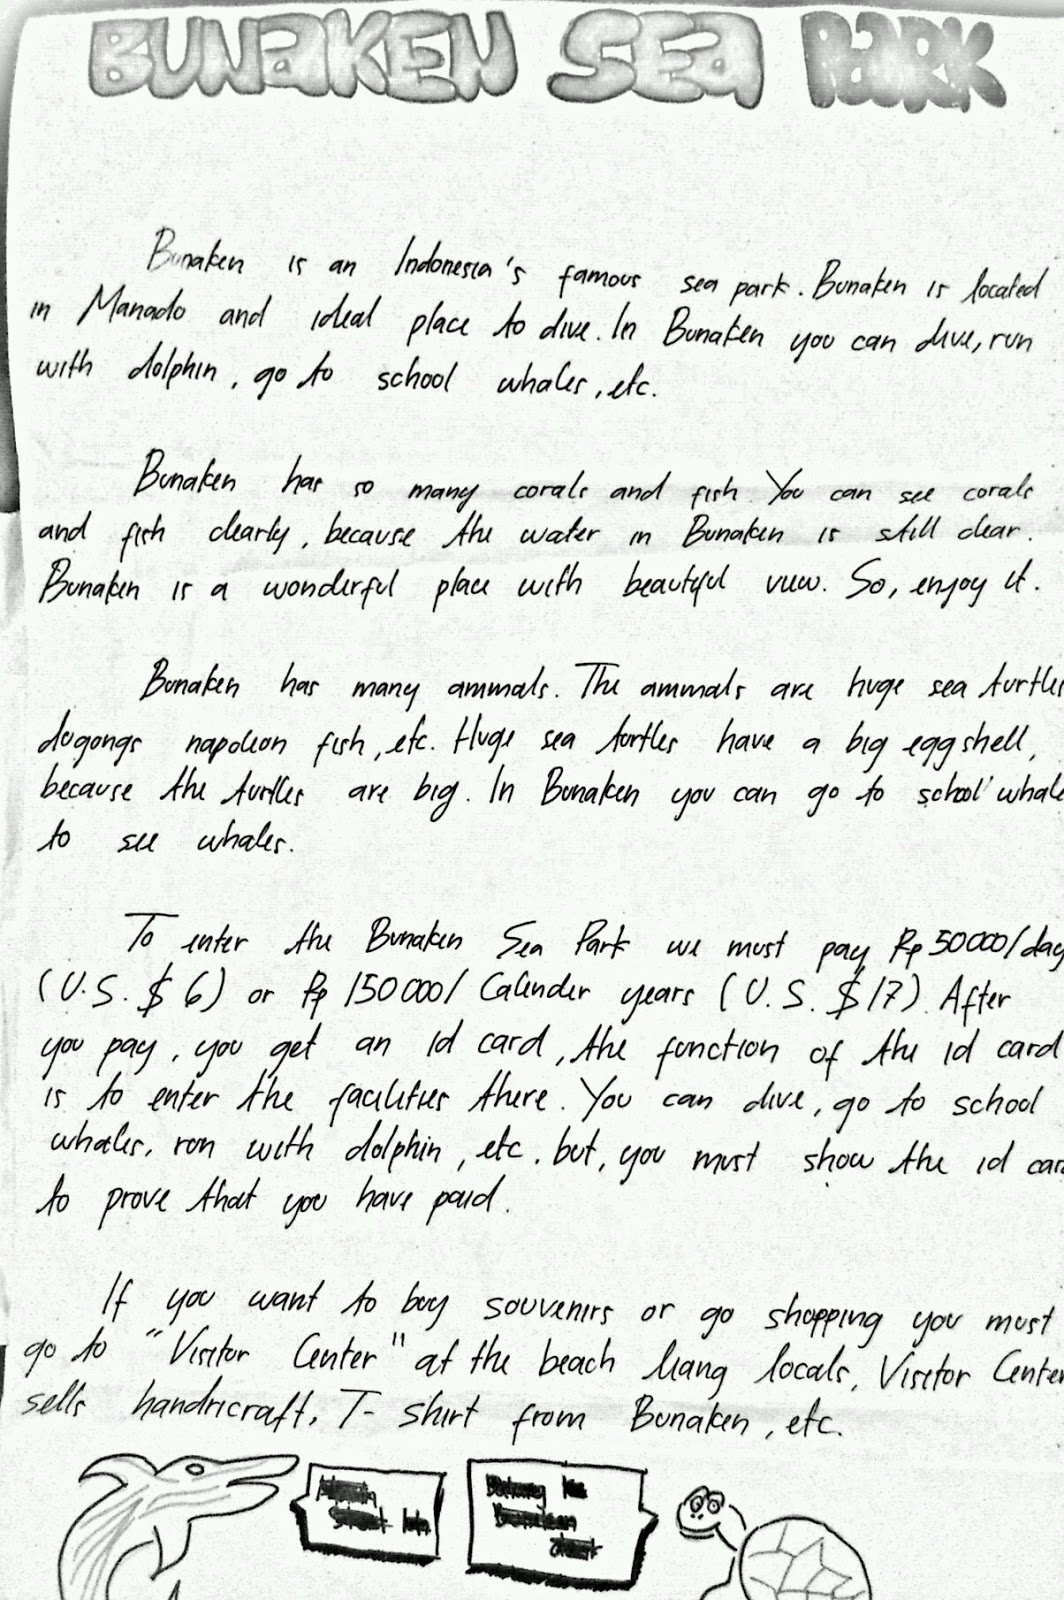 BUNAKEN SEA PARK
Bunaken is an Indonesia's famous sea park. Bunaken is located
in Manado and ideal place to dive. In Bunaken you can dive, run
with dolphin, go to school whales, etc.
Bunaken has so many corals and fish You can see corals
and fish clearly, because the water in Bunaken is still clear.
Bunaken is a wonderful place with beautiful view. So, enjoy it.
Bunaken has many animals. The animals are huge sea turtles
dugongs napoleon fish, etc. Huge sea turtles have a big egg shell,
because the turtles are big. In Bunaken you can go to school whale
to see whales.
To enter the Bunaken Sea Park we must pay Rp 50000/day
(U.S. $ 6) or Rp 150000/ Calender years (U.S. $ 17). After
you pay, you get an id card, the function of the id card
is to enter the facilities there. You can dive, go to school
whales, run with dolphin, etc. but, you must show the id card
to prove that you have paid.
If you want to buy souvenirs or go shopping you must
go to "Visitor Center" at the beach liang locals, Visitor Center
sells handricraft, T- shirt from Bunaken, etc.